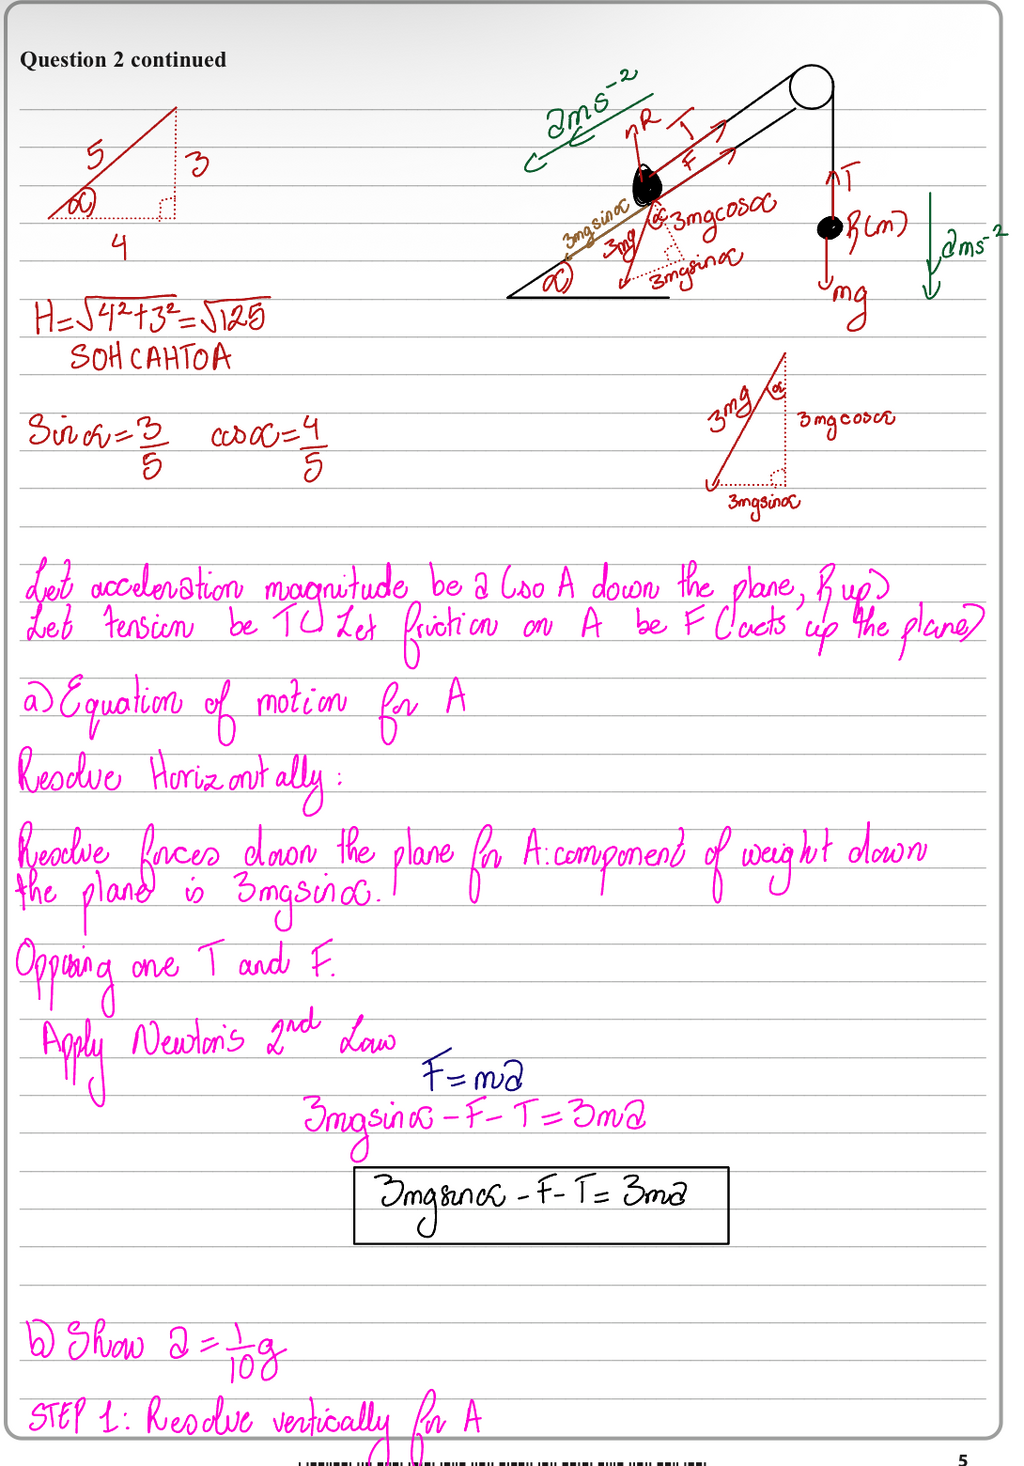 Question 2 continued
5
3
α
4
ams⁻²
R
T
F
3mgsinα
3mg
α
3mgcosα
3mgsinα
α
T
P(m)
mg
ams⁻²
H=√4²+3²=√125
SOHCAHTOA
3mg
α
3mgcosα
3mgsinα
Sinα=3/5 cosα=4/5
Let acceleration magnitude be a (so A down the plane, P up)
Let tension be T Let friction on A be F (acts up the plane)
a) Equation of motion for A
Resolve Horizontally:
Resolve forces down the plane for A: component of weight down
the plane is 3mgsinα.
Opposing one T and F.
Apply Newton's 2nd Law
F=ma
3mgsinα-F-T=3ma
3mgsinα-F-T=3ma
b) Show a=1/10g
STEP 1: Resolve vertically for A
5